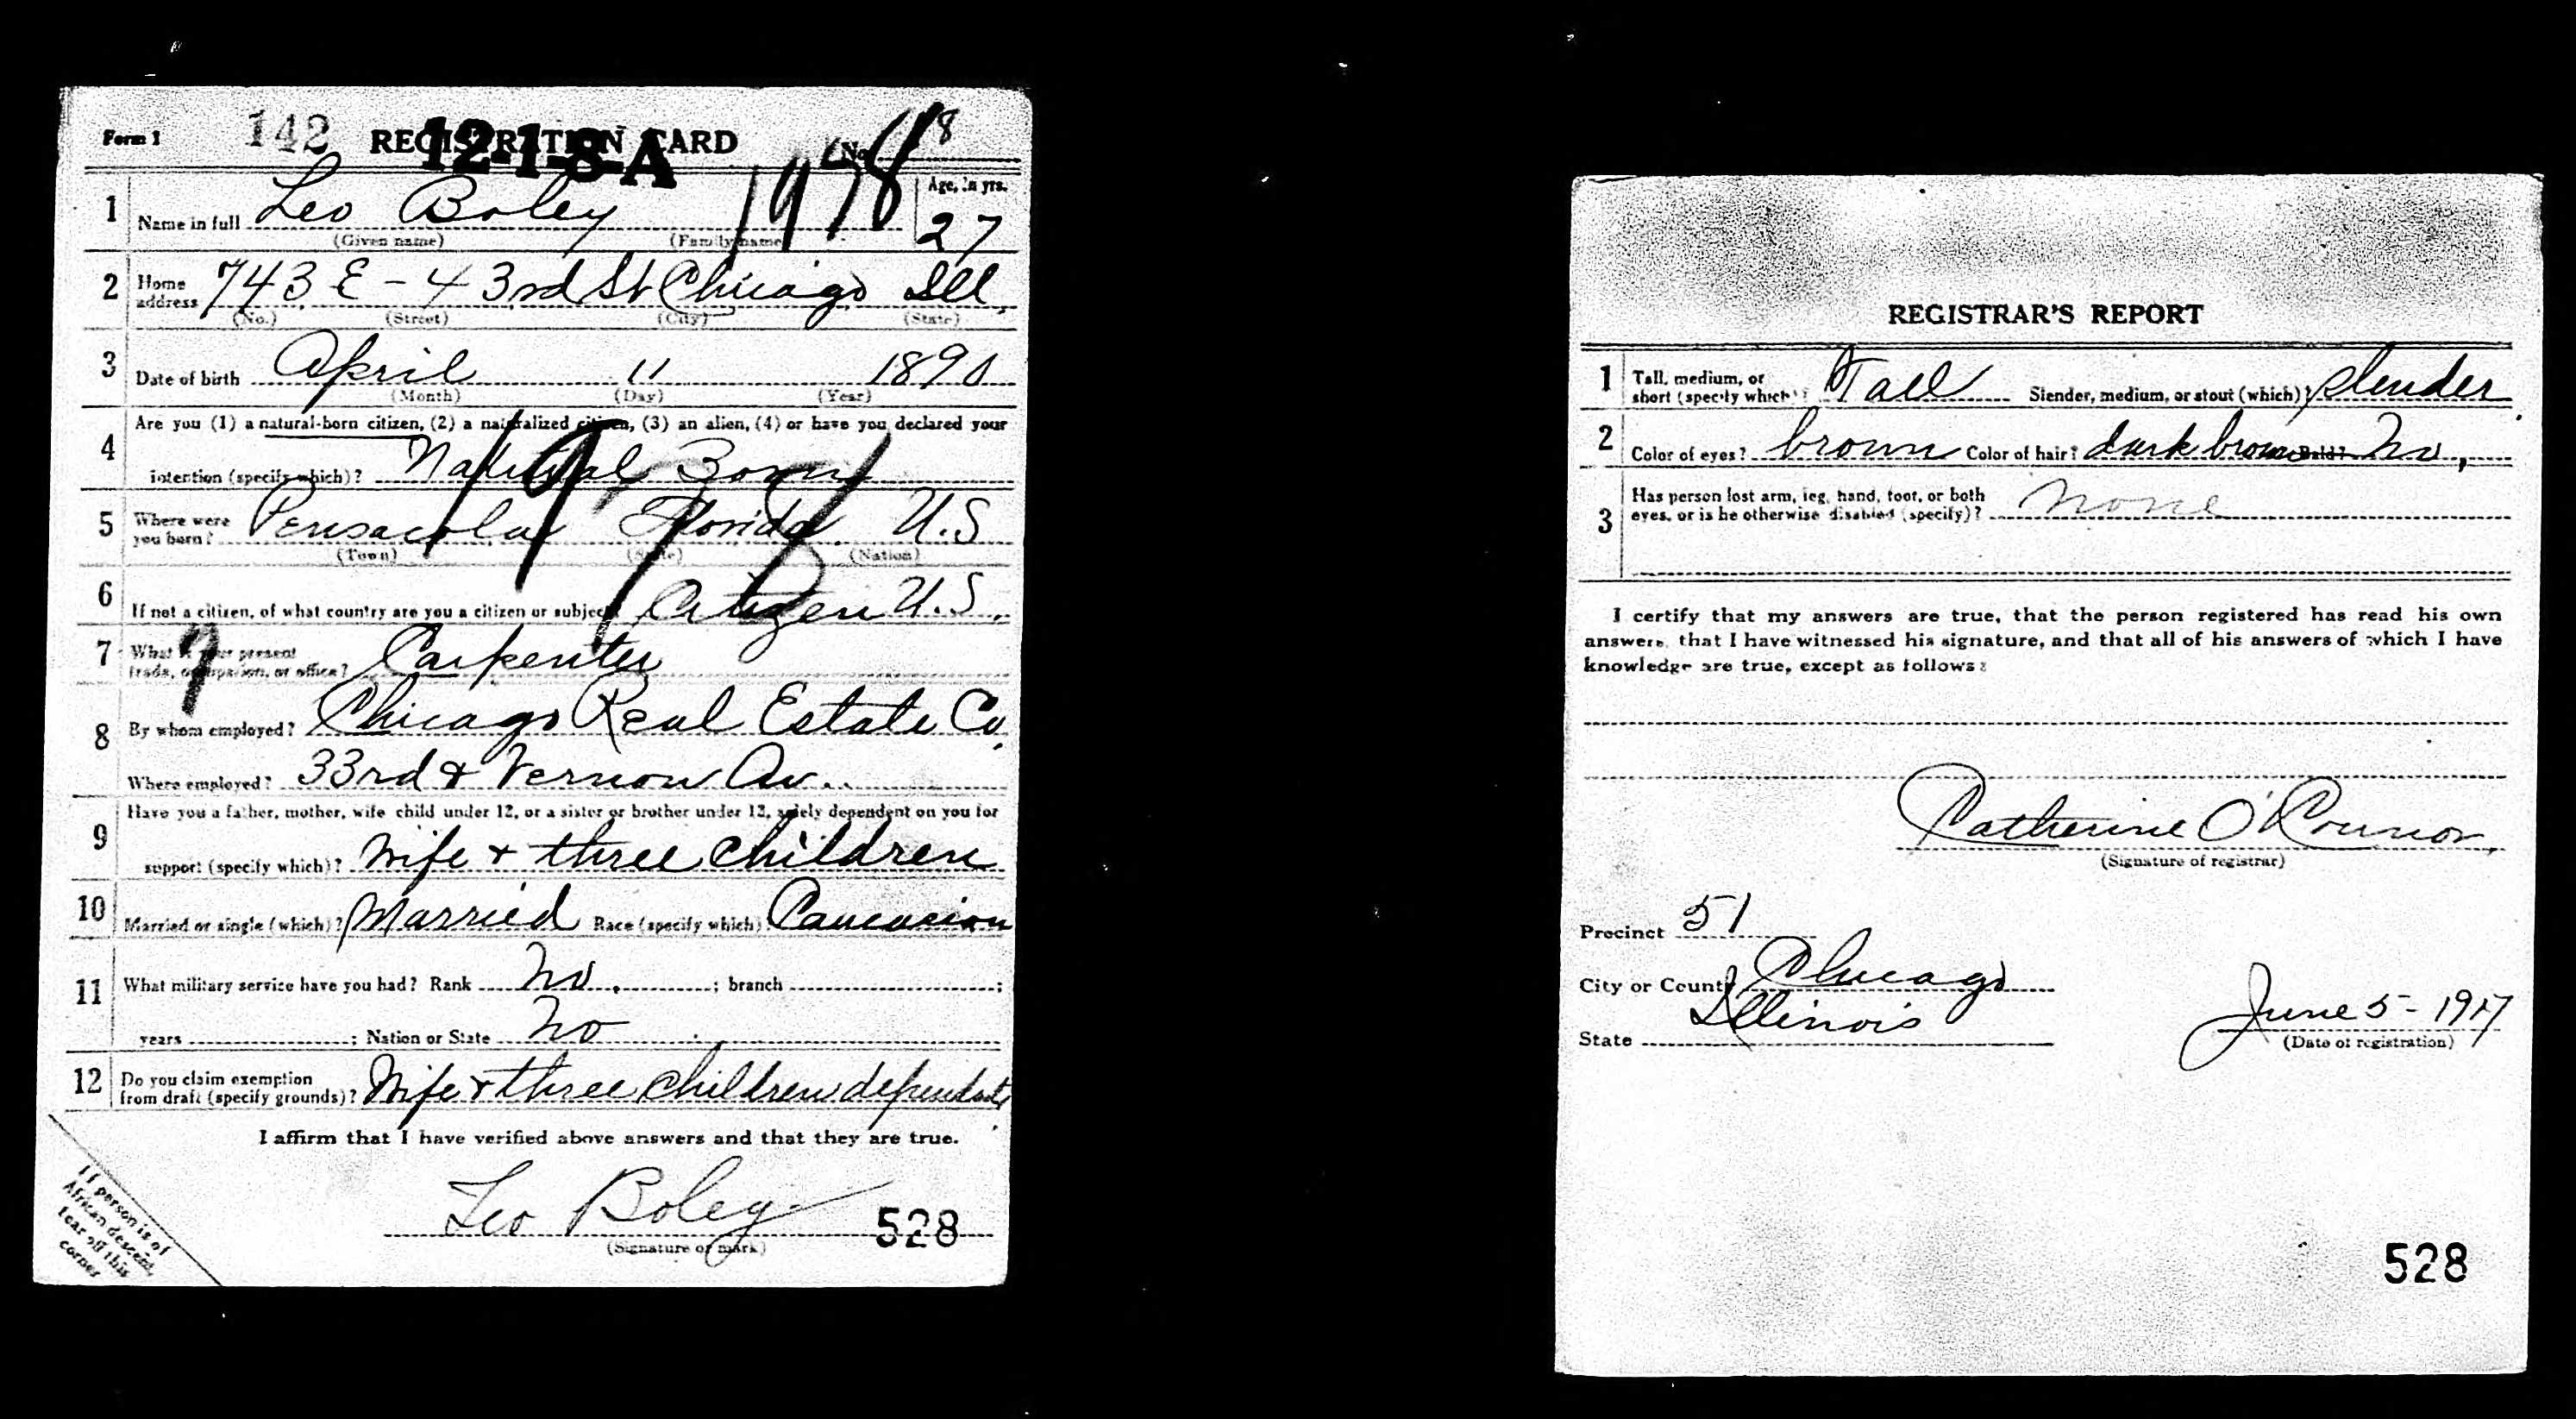 Form 1 142 REGISTRATION CARD No. 118
12-1-8-A
1978
1 Name in full Leo Boley Age, in yrs. 27
(Given name) (Family name)
2 Home address 743 E-43rd St Chicago Ill.
(No.) (Street) (City) (State)
3 Date of birth April 11 1890
(Month) (Day) (Year)
4 Are you (1) a natural-born citizen, (2) a naturalized citizen, (3) an alien, (4) or have you declared your
intention (specify which)? Natural Born
5 Where were you born? Pensacola Florida U.S
(Town) (State) (Nation)
6 If not a citizen, of what country are you a citizen or subject? Citizen U.S.
7 What is your present trade, occupation, or office? Carpenter
8 By whom employed? Chicago Real Estate Co.
Where employed? 33rd & Vernon Av..
9 Have you a father, mother, wife child under 12, or a sister or brother under 12, solely dependent on you for
support (specify which)? Wife & three children
10 Married or single (which)? Married Race (specify which) Caucasion
11 What military service have you had? Rank No. ; branch ;
years ; Nation or State No
12 Do you claim exemption from draft (specify grounds)? Wife & three children dependent
I affirm that I have verified above answers and that they are true.
Leo Boley 528
(Signature or mark)
If person is of
African descent,
tear off this
corner
REGISTRAR'S REPORT
1 Tall, medium, or short (specify which)? Tall Slender, medium, or stout (which)? slender
2 Color of eyes? brown Color of hair? dark brown Bald? No,
3 Has person lost arm, leg, hand, foot, or both eyes, or is he otherwise disabled (specify)? none
I certify that my answers are true, that the person registered has read his own
answers, that I have witnessed his signature, and that all of his answers of which I have
knowledge are true, except as follows:
Catherine O'Connor
(Signature of registrar)
Precinct 51
City or County Chicago
State Illinois June 5-1917
(Date of registration)
528